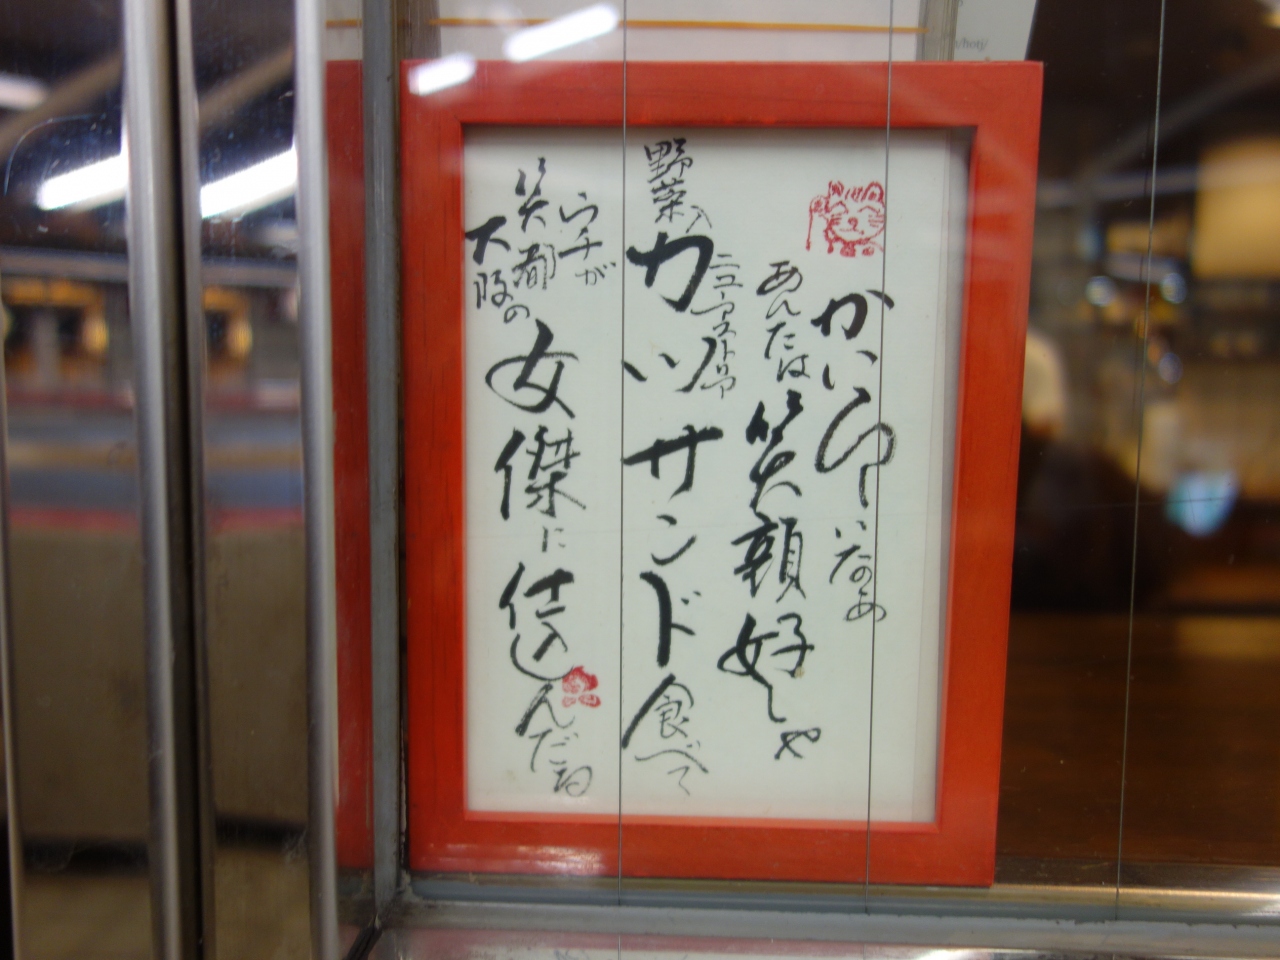 かい卬いなあ
あんたは笑顔好しや
ニューアストリア
野菜入カツサンド食べて
ウチが
笑都
大阪の女傑に仕込んだる